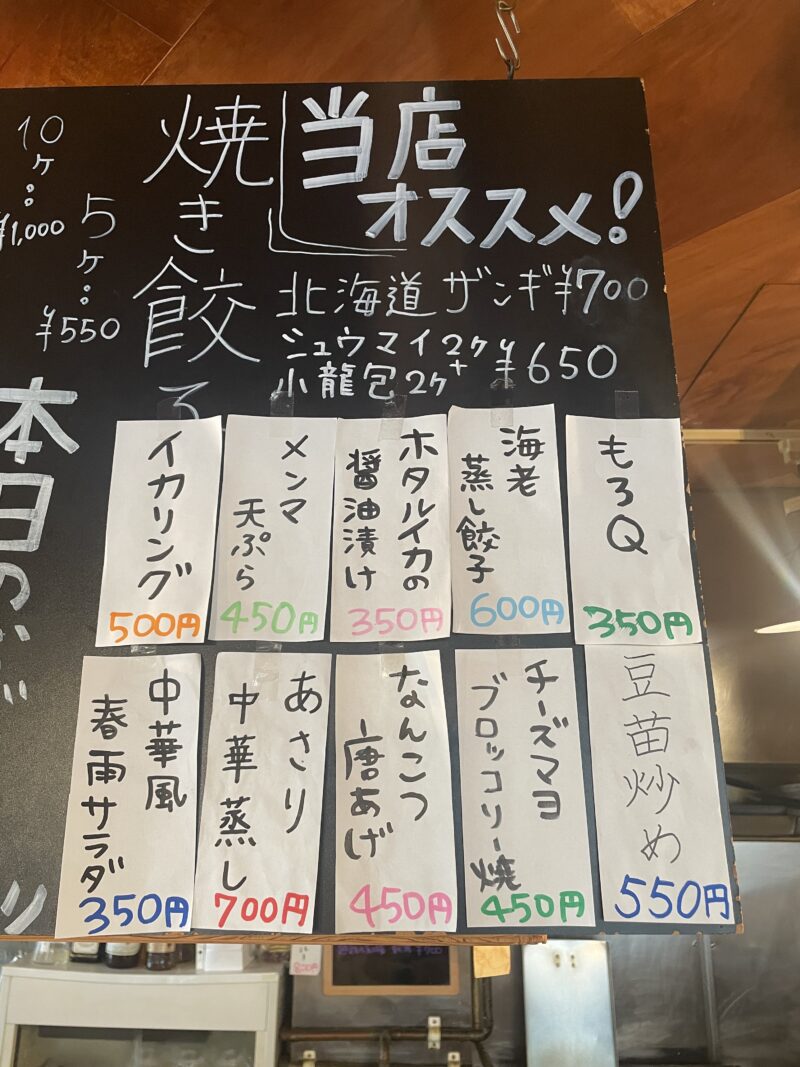 当店
オススメ!
北海道 ザンギ ¥700
シュウマイ2ケ
小龍包2ケ + ¥650
焼き餃子
5ケ:¥550
10ケ:¥1,000
本日の
もろQ
350円
海老
蒸し餃子
600円
ホタルイカの
醤油漬け
350円
メンマ
天ぷら
450円
イカリング
500円
豆苗炒め
550円
チーズマヨ
ブロッコリー焼
450円
なんこつ
唐あげ
450円
あさり
中華蒸し
700円
中華風
春雨サラダ
350円